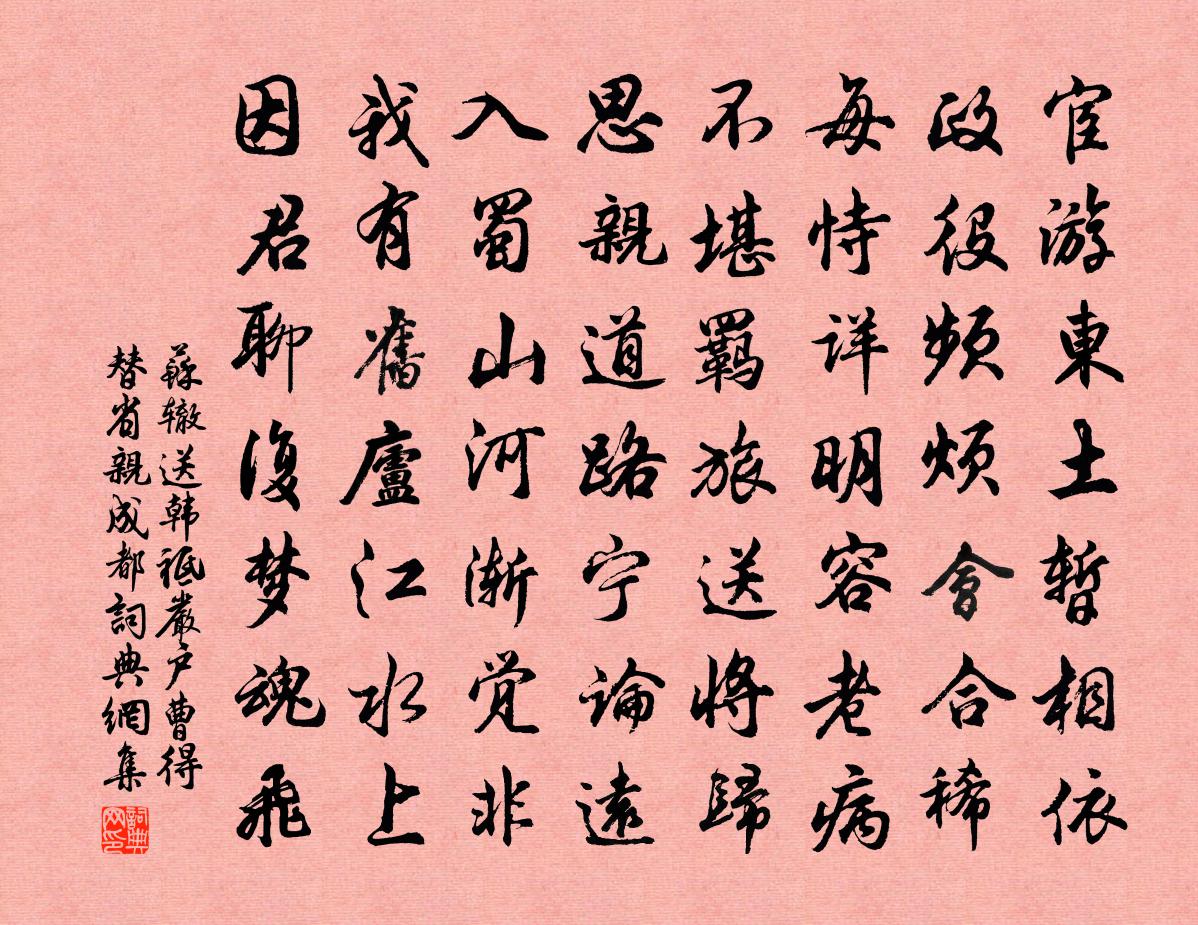 宦游東土暫相依
政役頻煩會合稀
每恃詳明容老病
不堪羈旅送將歸
思親道路宁論遠
入蜀山河渐觉非
我有舊廬江水上
因君聊復梦魂飛
蘇辙送韩祗嚴户曹得
替省親成都詞典網集
詞典
网印